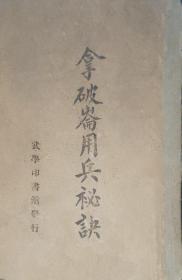 拿破崙用兵祕訣
武學印書館發行